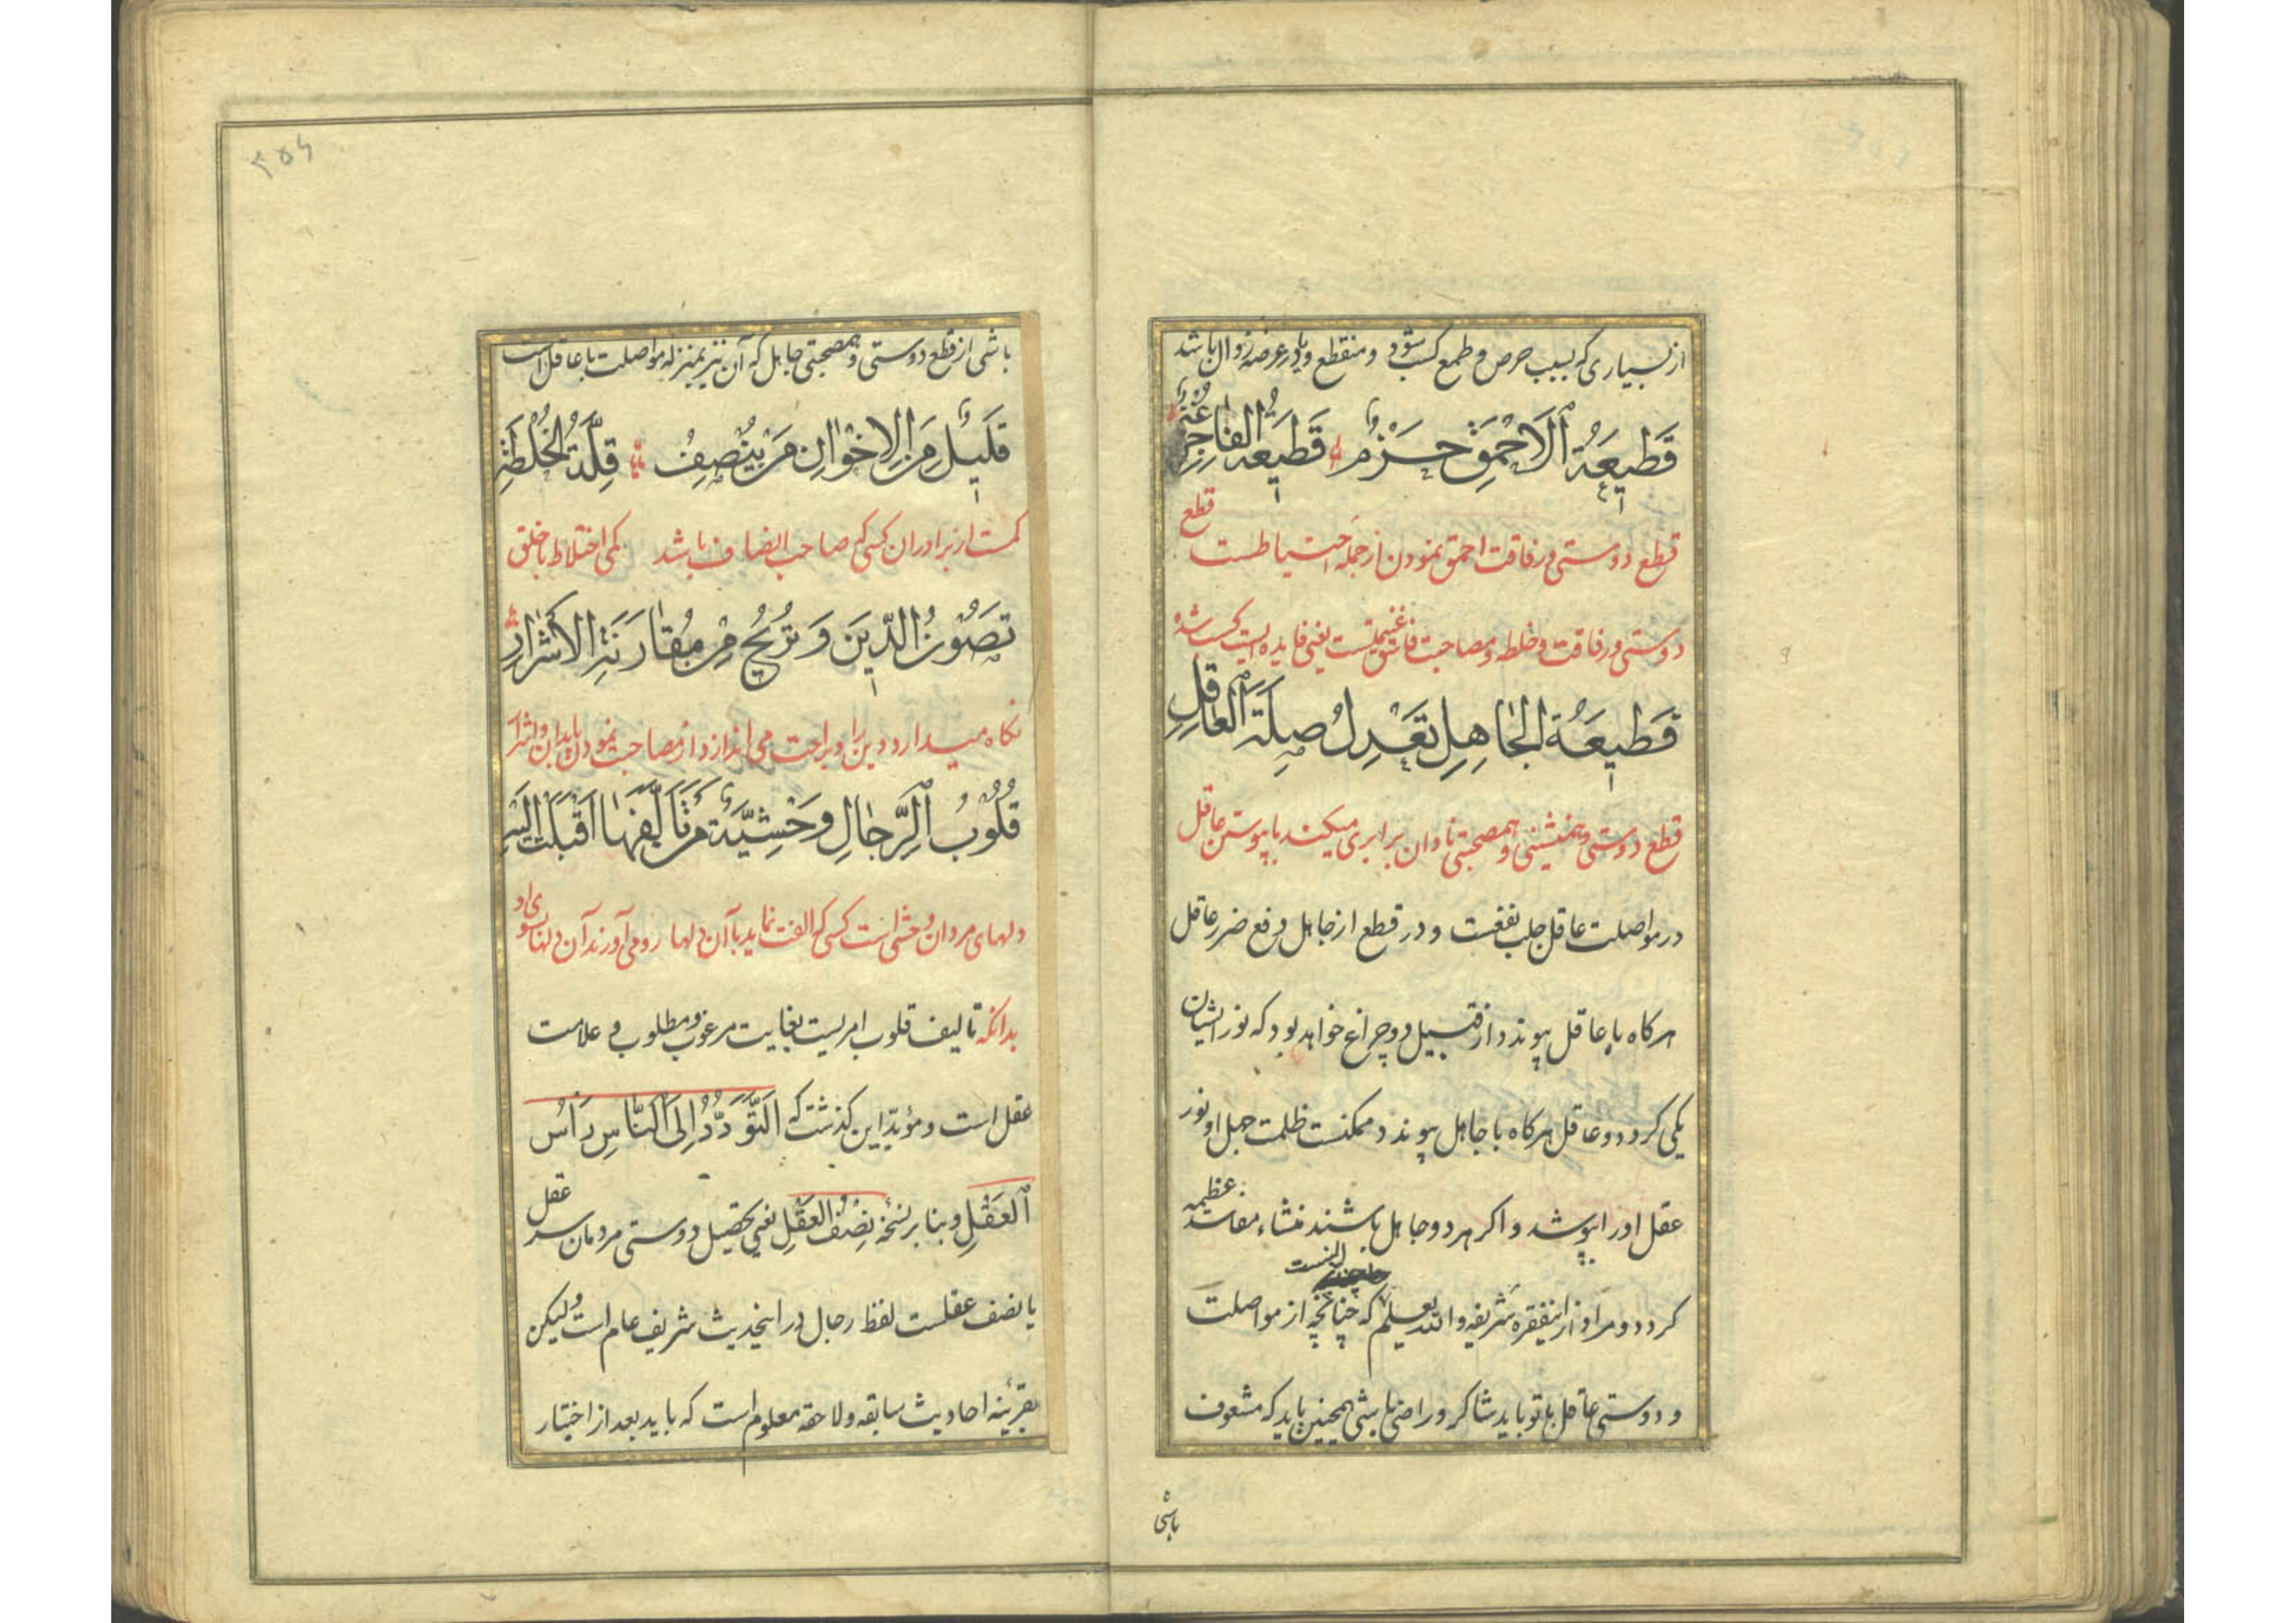 از بسیاری که بسبب حرص و طمع کسب شود و منقطع و یا در عرضه زوال باشد
قَطيعَةُ الاَحْمَقِ حَزْمٌ قَطيعَةُ الفٰاجِرِ غُنْمٌ
قطع دوستی و رفاقت احمق نمودن از جمله احتیاطست قطع
دوستی و رفاقت و خلطه و مصاحبت فاسق غنیمتست یعنی فایده ایست کسب شده
قَطيعَةُ الجٰاهِلِ تَعْدِلُ صِلَةَ العٰاقِلِ
قطع دوستی و همنشینی و همصحبتی نادان برابری میکند با پیوستن عاقل
در مواصلت عاقل جلب نفعست و در قطع از جاهل دفع ضرر عاقل
هرکاه با عاقل پیوندد از قبیل دو چراغ خواهد بود که نور ایشان
یکی کردد و عاقل هرکاه با جاهل پیوندد ممکنست ظلمت جهل او نور
عقل او را بپوشد و اکر هر دو جاهل باشند منشاء مفاسد عظیمه
کردد و مراد از اینفقره شریفه والله یعلم که چنانچه از مواصلت
و دوستی عاقل با تو باید شاکر و راضی باشی همچنین باید که مشعوف
باشی
۳۵۶
باشی از قطع دوستی و همصحبتی جاهل که آن نیز بمنزله مواصلت با عاقل است
قَليلٌ مِنَ الاِخْوٰانِ مَنْ يُنْصِفُ قِلَّةُ الخُلْطَةِ
کمست از برادران کسی که صاحب انصاف باشد کمی اختلاط با خلق
تَصُونُ الدّينَ وَ تُرِيحُ مِنْ مُقٰارَنَةِ الاَشْرٰارِ
نکاه میدارد دین را و براحت می اندازد از مصاحبت نمودن با بدان و اشرار
قُلُوبُ الرِّجٰالِ وَحْشِيَّةٌ مَنْ تَأَلَّفَهٰا اَقْبَلَتْ اِلَيْهِ
دلهای مردان وحشی است کسی که الفت نماید با آن دلها رو می آورند آن دلها بسوی او
بدانکه تالیف قلوب امریست بغایت مرغوب و مطلوب و علامت
عقل است و مؤید این کذشت که اَلتَّوَدُّدُ اِلَى النّٰاسِ رَأْسُ
العَقْلِ و بنا بر نسخه نِصْفُ العَقْلِ یعنی تحصیل دوستی مردمان سر عقل
یا نصف عقلست لفظ رجال در اینحدیث شریف عام است ولیکن
بقرینه احادیث سابقه و لاحقه معلوم است که باید بعد از اختیار